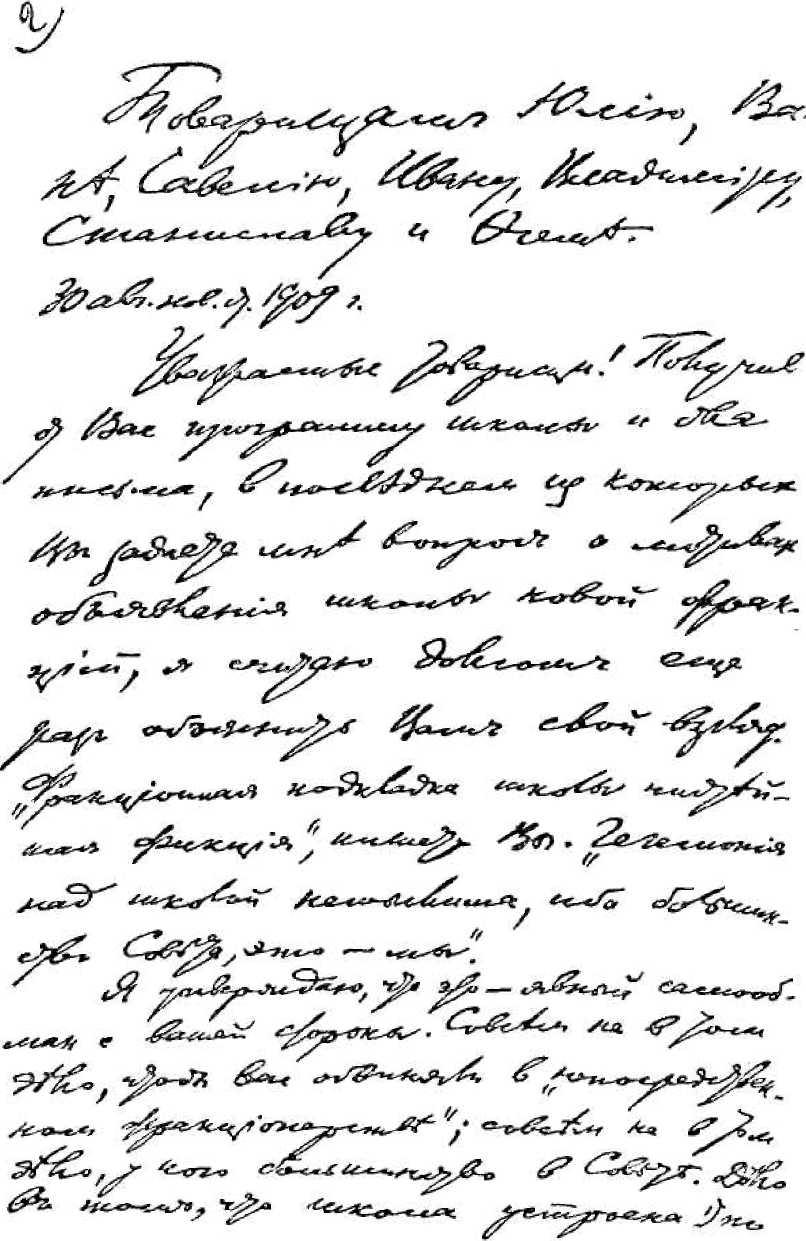 2)
Товарищамъ Юлію, Ва-
нѣ, Савелію, Ивану, Владиміру,
Станиславу и Ѳомѣ.
30 авг. нов. ст. 1909 г.
Уважаемые товарищи! Получив
от Вас программу школы и два
письма, в последнем из которых
Вы задаете мнѣ вопрос о мотивах
объявленія школы новой фрак-
ціей, я считаю долгомъ еще
раз объяснить Вамъ свой взгляд.
„Фракціонная подкладка школы чистѣй-
шая фикція“, пишете Вы. „Гегемонія
над школой немыслима, ибо большин-
ство Совѣта, это — мы“.
Я утверждаю, что это — явный самооб-
ман с вашей стороны. Совсѣм не в том
дѣло, чтобы вас обвиняли в „непосредствен-
ном фракціонерствѣ“; совсѣм не в том
дѣло, у кого большинство в Совѣтѣ. Дѣло
въ томъ, что школа устроена 1) по